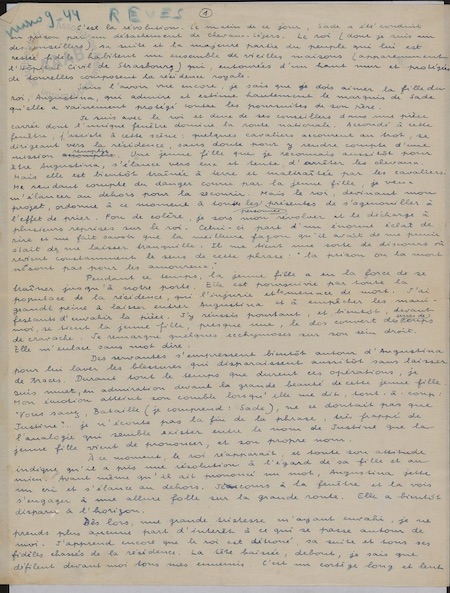 9-44 RÊVES 1
C'est la révolution. Le matin de ce jour, Sade a été conduit
en prison par un détachement de chevau-légers. Le roi (dont je suis un
des conseillers), sa suite et la majeure partie du peuple qui lui est
restée fidèle habitent un ensemble de vieilles maisons (apparemment
l'Hôpital Civil de Strasbourg) qui, entourées d'un haut mur et protégées
de tourelles composent la résidence royale.
Sans l'avoir vue encore, je sais que je dois aimer la fille du
roi, Augustina, qui admire et estime hautement le marquis de Sade
qu'elle a vainement protégé contre les poursuites de son père.
Je suis avec le roi et deux de ses conseillers dans une pièce
carrée dont l'unique fenêtre domine la route nationale. Accoudé à cette
fenêtre, j'assiste à cette scène: quelques cavaliers accourent au trot, se
dirigeant vers la résidence, sans doute pour y rendre compte d'une
mission. Une jeune fille que je reconnais aussitôt pour
être Augustina, s'élance vers eux et tente d'arrêter les chevaux.
Mais elle est bientôt traînée à terre et maltraitée par les cavaliers.
Me rendant compte du danger couru par la jeune fille, je veux
m'élancer au dehors pour la secourir. Mais le roi, devinant mon
projet, ordonne à ce moment à tous les présents de s'agenouiller à
l'effet de prier. Fou de colère, je sors mon révolver et le décharge à
plusieurs reprises sur le roi. Celui-ci part d'un énorme éclat de
rire et me fait savoir que la meilleure façon qu'il avait de me punir
était de me laisser tranquille. Il me tient une sorte de discours où
revient constamment le sens de cette phrase: "la prison ou la mort
ne sont pas pour les amoureux."
Pendant ce temps, la jeune fille a eu la force de se
traîner jusqu'à notre porte. Elle est poursuivie par toute la
populace de la résidence, qui l'injurie et menace de mort. J'ai
grand peine à laisser entrer Augustina et à empêcher les mani-
festants d'envahir la pièce. J'y réussis pourtant, et bientôt, devant
moi, se tient la jeune fille, presque nue, le dos couvert de coups
de cravache. Je remarque quelques ecchymoses sur son sein droit.
Elle m'enlace sans mot dire.
Des servantes s'empressent bientôt autour d'Augustina
pour lui laver les blessures qui disparaissent aussitôt sans laisser
de traces. Durant tout le temps que durent ces opérations, je
suis muet, en admiration devant la grande beauté de cette jeune fille.
Mon émotion atteint son comble lorsqu'elle me dit, tout-à-coup:
"Vous savez, Bataille (je comprends: Sade), ne se doutait pas que
Justine". Je n'écoute pas la fin de la phrase, très frappé de
l'analogie qui semble exister entre le nom de Justine que la
jeune fille vient de prononcer, et son propre nom.
A ce moment, le roi réapparaît, et toute son attitude
indique qu'il a pris une résolution à l'égard de sa fille et au
mien. Avant même qu'il ait prononcé un mot, Augustina jette
un cri et s'élance au dehors. Je cours à la fenêtre et la vois
s'engager à une allure folle sur la grande route. Elle a bientôt
disparu à l'horizon.
Dès lors, une grande tristesse m'ayant envahi, je ne
prends plus aucune part d'intérêt à ce qui se passe autour de
moi. J'apprends encore que le roi est détrôné, sa suite et tous ses
fidèles chassés de la résidence. La tête baissée, debout, je sais que
défilent devant moi tous mes ennemis. C'est un cortège long et lent